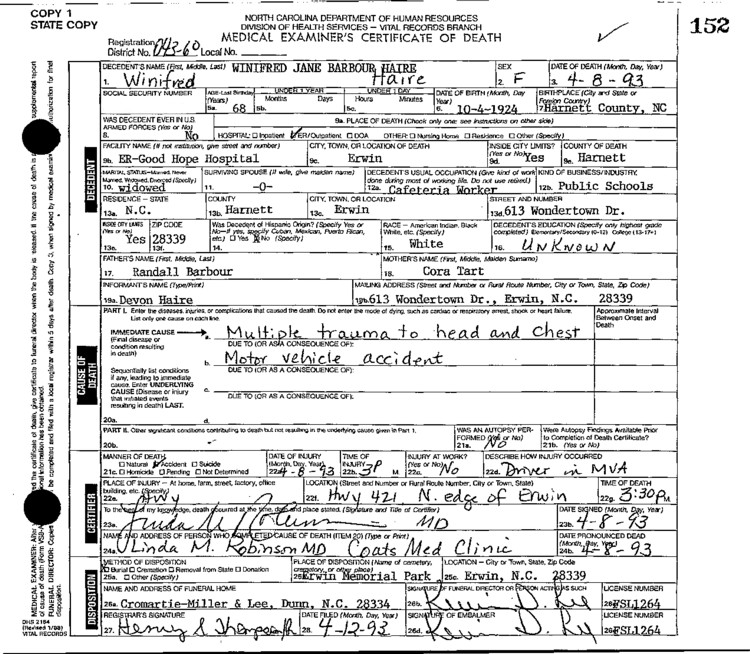 COPY 1
STATE COPY
NORTH CAROLINA DEPARTMENT OF HUMAN RESOURCES
DIVISION OF HEALTH SERVICES – VITAL RECORDS BRANCH
MEDICAL EXAMINER'S CERTIFICATE OF DEATH
152
Registration District No. 043-60 Local No.
DECEDENT'S NAME (First, Middle, Last) WINIFRED JANE BARBOUR HAIRE
1. Winifred Haire
SEX
2. F
DATE OF DEATH (Month, Day, Year)
3. 4-8-93
SOCIAL SECURITY NUMBER
AGE-Last Birthday (Years)
5a. 68
UNDER 1 YEAR
Months Days
5b.
UNDER 1 DAY
Hours Minutes
5c.
DATE OF BIRTH (Month, Day Year)
6. 10-4-1924
BIRTHPLACE (City and State or Foreign Country)
7. Harnett County, NC
WAS DECEDENT EVER IN U.S. ARMED FORCES (Yes or No)
8. No
9a. PLACE OF DEATH (Check only one: see instructions on other side)
HOSPITAL: Inpatient ER/Outpatient DOA OTHER: Nursing Home Residence Other (Specify)
FACILITY NAME (If not institution, give street and number)
9b. ER-Good Hope Hospital
CITY, TOWN, OR LOCATION OF DEATH
9c. Erwin
INSIDE CITY LIMITS? (Yes or No)
9d. Yes
COUNTY OF DEATH
9e. Harnett
DECEDENT
MARITAL STATUS-Married, Never Married, Widowed, Divorced (Specify)
10. widowed
SURVIVING SPOUSE (If wife, give maiden name)
11. -0-
DECEDENT'S USUAL OCCUPATION (Give kind of work done during most of working life. Do not use retired)
12a. Cafeteria Worker
KIND OF BUSINESS/INDUSTRY
12b. Public Schools
RESIDENCE – STATE
13a. N.C.
COUNTY
13b. Harnett
CITY, TOWN, OR LOCATION
13c. Erwin
STREET AND NUMBER
13d. 613 Wondertown Dr.
INSIDE CITY LIMITS (Yes or No)
13e. Yes
ZIP CODE
13f. 28339
Was Decedent of Hispanic Origin? (Specify Yes or No-If yes, specify Cuban, Mexican, Puerto Rican, etc.) Yes No
14.
RACE – American Indian, Black White, etc. (Specify)
15. White
DECEDENT'S EDUCATION (Specify only highest grade completed) Elementary/Secondary (0-12) College (13-17+)
16. UNKNOWN
FATHER'S NAME (First, Middle, Last)
17. Randall Barbour
MOTHER'S NAME (First, Middle, Maiden Surname)
18. Cora Tart
INFORMANT'S NAME (Type/Print)
19a. Devon Haire
MAILING ADDRESS (Street and Number or Rural Route Number, City or Town, State, Zip Code)
19b. 613 Wondertown Dr., Erwin, N.C. 28339
PART I. Enter the diseases, injuries, or complications that caused the death. Do not enter the mode of dying, such as cardiac or respiratory arrest, shock or heart failure.
List only one cause on each line.
Approximate Interval Between Onset and Death
CAUSE OF DEATH
IMMEDIATE CAUSE (Final disease or condition resulting in death)
a. Multiple trauma to head and Chest
DUE TO (OR AS A CONSEQUENCE OF):
b. Motor vehicle accident
DUE TO (OR AS A CONSEQUENCE OF):
Sequentially list conditions if any, leading to immediate cause. Enter UNDERLYING CAUSE (Disease or injury that initiated events resulting in death) LAST.
c.
DUE TO (OR AS A CONSEQUENCE OF):
20a. d.
PART II. Other significant conditions contributing to death but not resulting in the underlying cause given in Part 1.
20b.
WAS AN AUTOPSY PERFORMED (Yes or No)
21a. NO
Were Autopsy Findings Available Prior to Completion of Death Certificate?
21b. (Yes or No)
MANNER OF DEATH
Natural Accident Suicide
21c. Homicide Pending Not Determined
DATE OF INJURY (Month, Day, Year)
22a. 4-8-93
TIME OF INJURY
22b. 3P M.
INJURY AT WORK? (Yes or No)
22c. No
DESCRIBE HOW INJURY OCCURRED
22d. Driver in MVA
PLACE OF INJURY – At home, farm, street, factory, office building, etc. (Specify)
22e. HWY
LOCATION (Street and Number or Rural Route Number, City or Town, State)
22f. Hwy 421 N. edge of Erwin
TIME OF DEATH
22g. 3:30PM
CERTIFIER
To the best of my knowledge, death occurred at the time, date and place stated. (Signature and Title of Certifier)
23a. MD
DATE SIGNED (Month, Day, Year)
23b. 4-8-93
NAME AND ADDRESS OF PERSON WHO COMPLETED CAUSE OF DEATH (ITEM 20) (Type or Print)
24a. Linda M. Robinson MD Coats Med Clinic
DATE PRONOUNCED DEAD (Month, Day, Year)
24b. 4-8-93
DISPOSITION
METHOD OF DISPOSITION
Burial Cremation Removal from State Donation
25a. Other (Specify)
PLACE OF DISPOSITION (Name of cemetery, crematory, or other place)
25b. Erwin Memorial Park
LOCATION – City or Town, State, Zip Code
25c. Erwin, N.C. 28339
NAME AND ADDRESS OF FUNERAL HOME
26a. Cromartie-Miller & Lee, Dunn, N.C. 28334
SIGNATURE OF FUNERAL DIRECTOR OR PERSON ACTING AS SUCH
26b. Kevin D. Lee
LICENSE NUMBER
26c. FSL1264
REGISTRAR'S SIGNATURE
27. Henry S Thompson
DATE FILED (Month, Day, Year)
28. 4-12-93
SIGNATURE OF EMBALMER
26d. Kevin D. Lee
LICENSE NUMBER
26e. FSL1264
DHS 2164
(Revised 1/88)
VITAL RECORDS